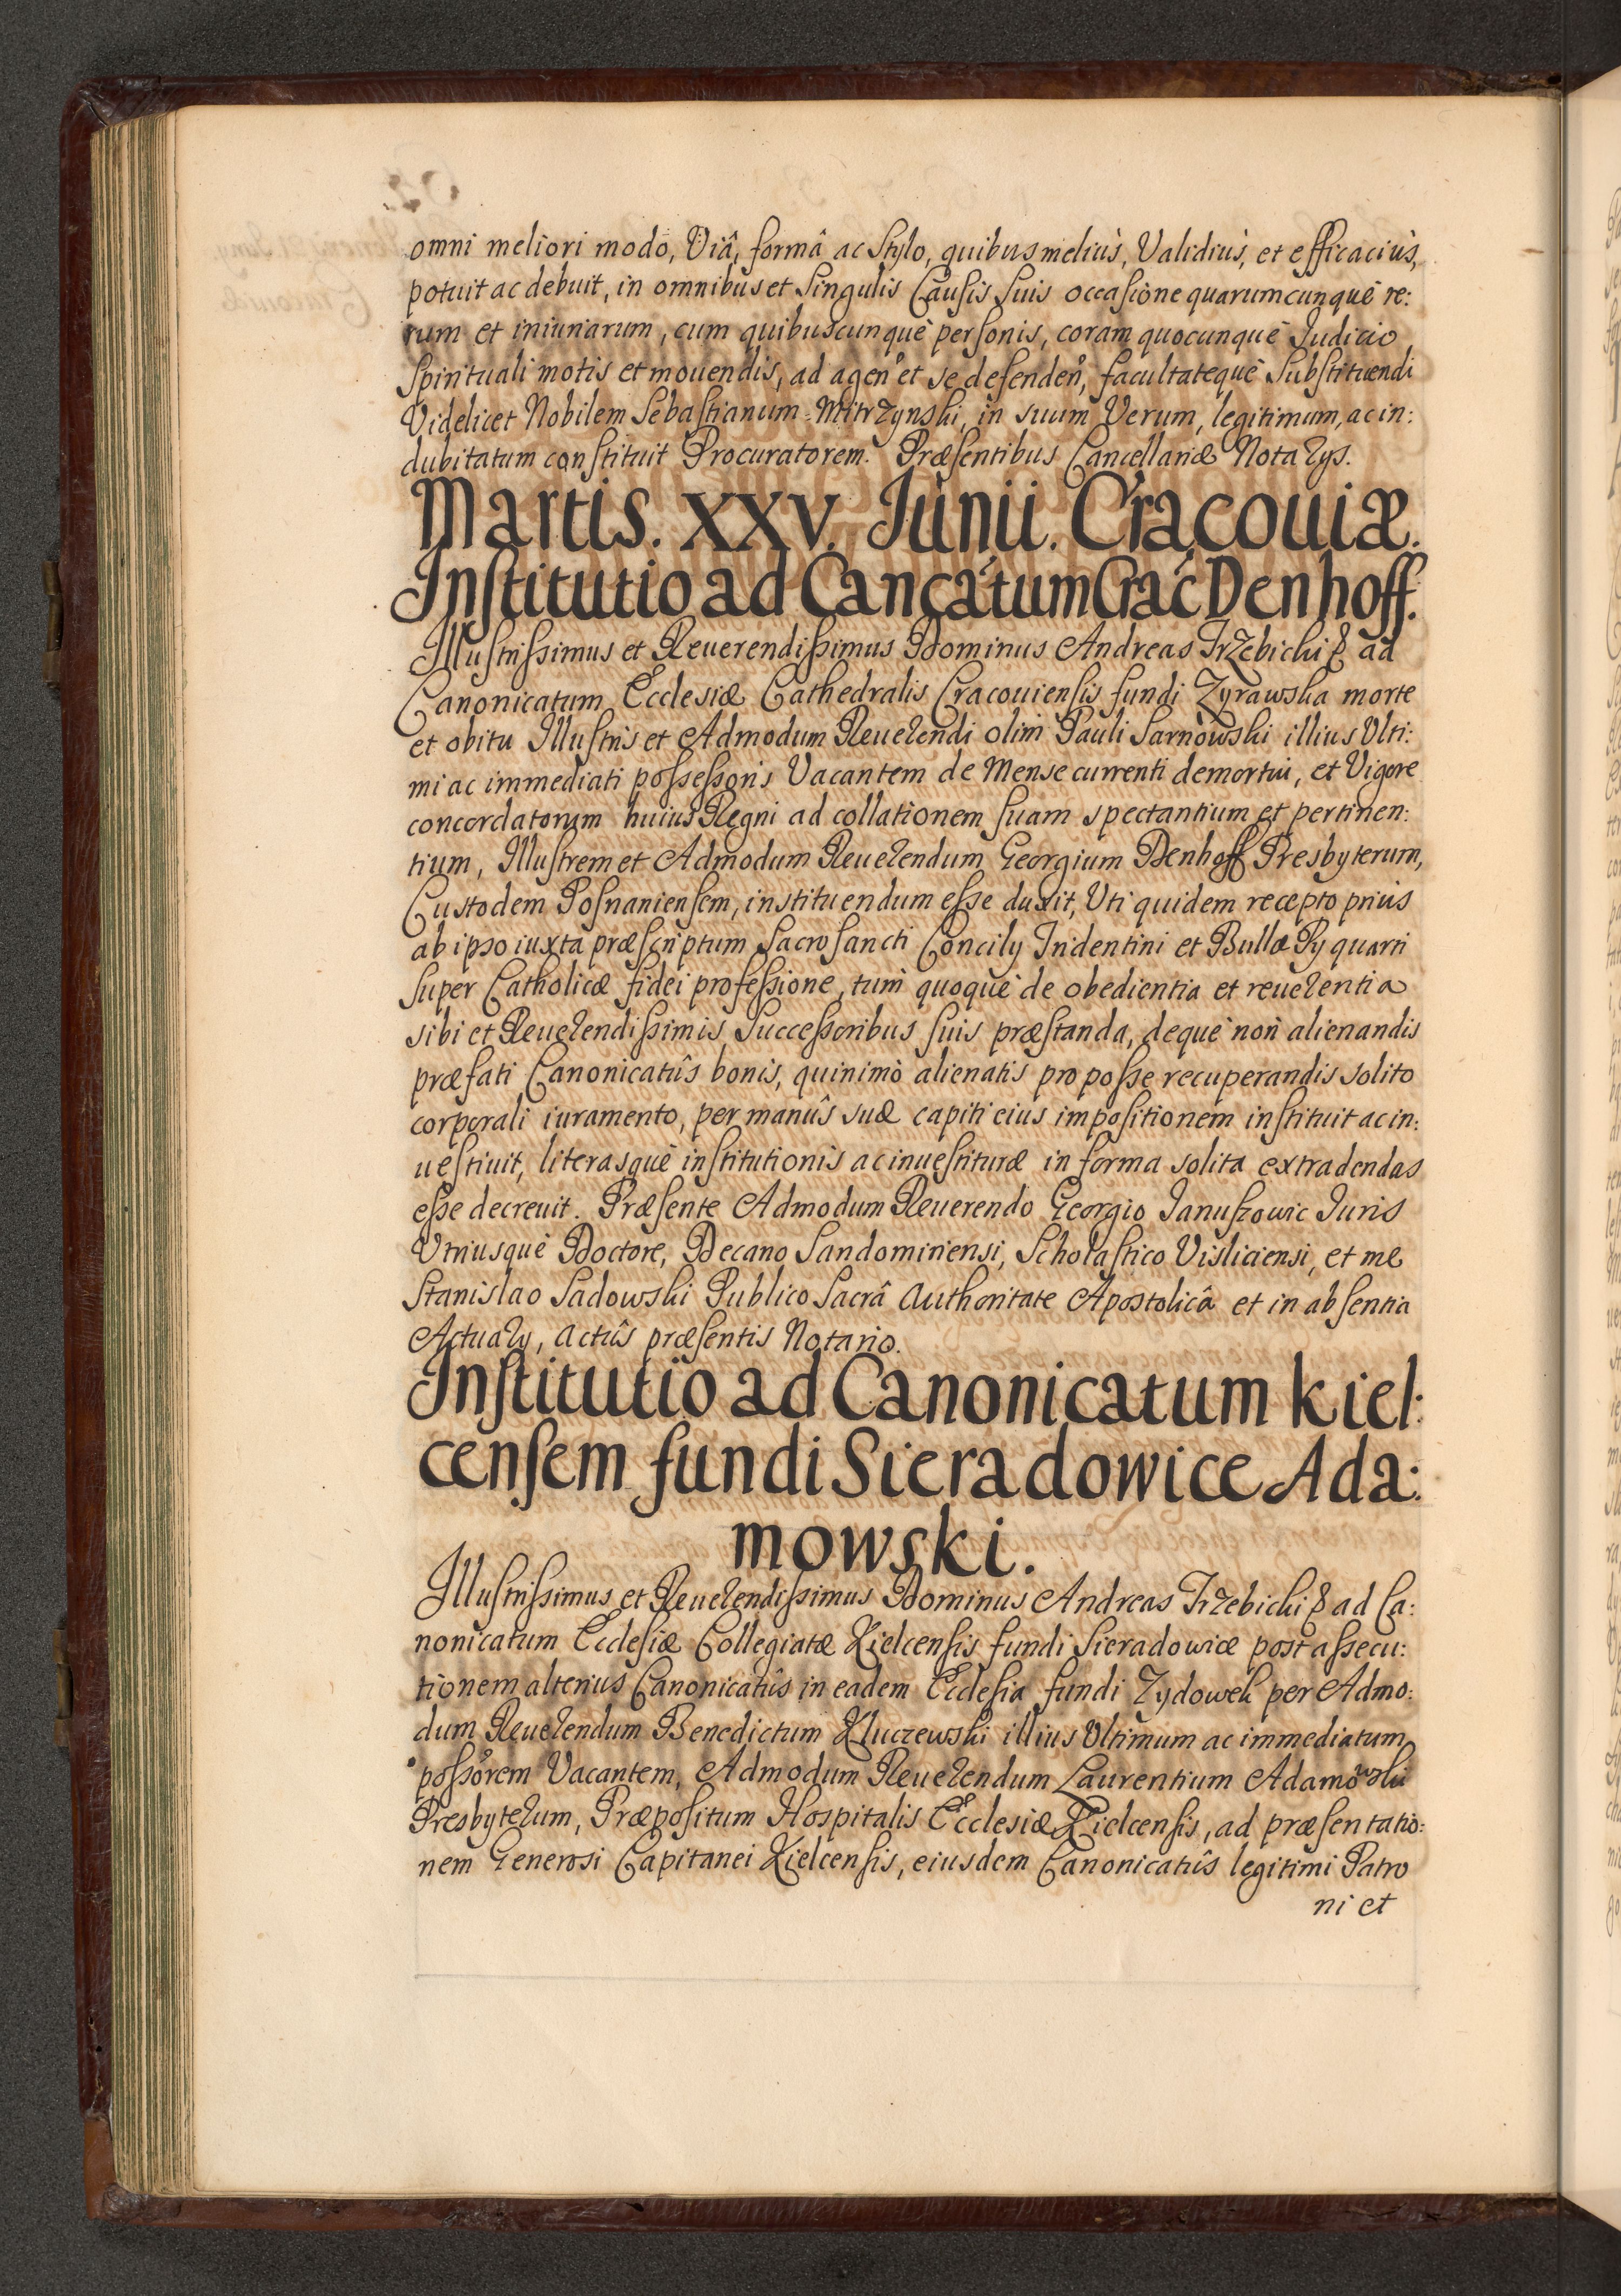 omni meliori modo, Viâ, formâ ac Stylo, quibus meliùs, Validiùs, et efficaciùs,
potuit ac debuit, in omnibus et Singulis Causis Suis occasione quarumcunquè re:
rum et iniuriarum, cum quibuscunquè personis, coram quocunquè Iudicio
Spirituali motis et mouendis, ad agen et se defenden, facultatequè Substituendi
Videlicet Nobilem Sebastianum Mitrzynski, in suum Verum, legitimum, ac in:
dubitatum constituit Procuratorem. Præsentibus Cancellariæ Notarys.
Martis. XXV. Iunii. Cracouiæ.
Institutio ad Cancatum Crac Denhoff.
Illustrissimus et Reuerendissimus Dominus Andreas Trzebicki & ad
Canonicatum Ecclesiæ Cathedralis Cracouiensis fundi Zyrawska morte
et obitu Illustris et Admodum Reuerendi olim Pauli Sarnowski illius Vlti:
mi ac immediati possessoris Vacantem de Mense currenti demortui, et Vigore
concordatorum huius Regni ad collationem suam spectantium et pertinen:
tium, Illustrem et Admodum Reuerendum Georgium Denhoff Presbyterum,
Custodem Posnaniensem, instituendum esse duxit, Vti quidem recepto priùs
ab ipso iuxta præscriptum Sacrosancti Concily Tridentini et Bullæ Py quarti
super Catholicæ fidei professione, tùm quoquè de obedientia et reuerentia
sibi et Reuerendissimis Successoribus suis præstanda, dequè non alienandis
præfati Canonicatûs bonis, quinimò alienatis pro posse recuperandis solito
corporali iuramento, per manûs suæ capiti eius impositionem instituit ac in:
uestiuit, literasquè institutionis ac inuestituræ in forma solita extradendas
esse decreuit. Præsente Admodum Reuerendo Georgio Januszowic Iuris
Vtriusquè Doctore, Decano Sandomiriensi, Scholastico Visliciensi, et me
Stanislao Sadowski Publico Sacrâ Authoritate Apostolicâ et in absentia
Actuary, actûs præsentis Notario.
Institutio ad Canonicatum Kiel:
censem fundi Sieradowice Ada:
mowski.
Illustrissimus et Reuerendissimus Dominus Andreas Trzebicki & ad Ca:
nonicatum Ecclesiæ Collegiatæ Kielcensis fundi Sieradowice post assecu:
tionem alterius Canonicatûs in eadem Ecclesia fundi Zydowek per Admo:
dum Reuerendum Benedictum Kluczewski illius Vltimum ac immediatum
possorem Vacantem, Admodum Reuerendum Laurentium Adamowski
Presbyterum, Præpositum Hospitalis Ecclesiæ Kielcensis, ad præsentatio:
nem Generosi Capitanei Kielcensis, eiusdem Canonicatûs legitimi Patro
ni et